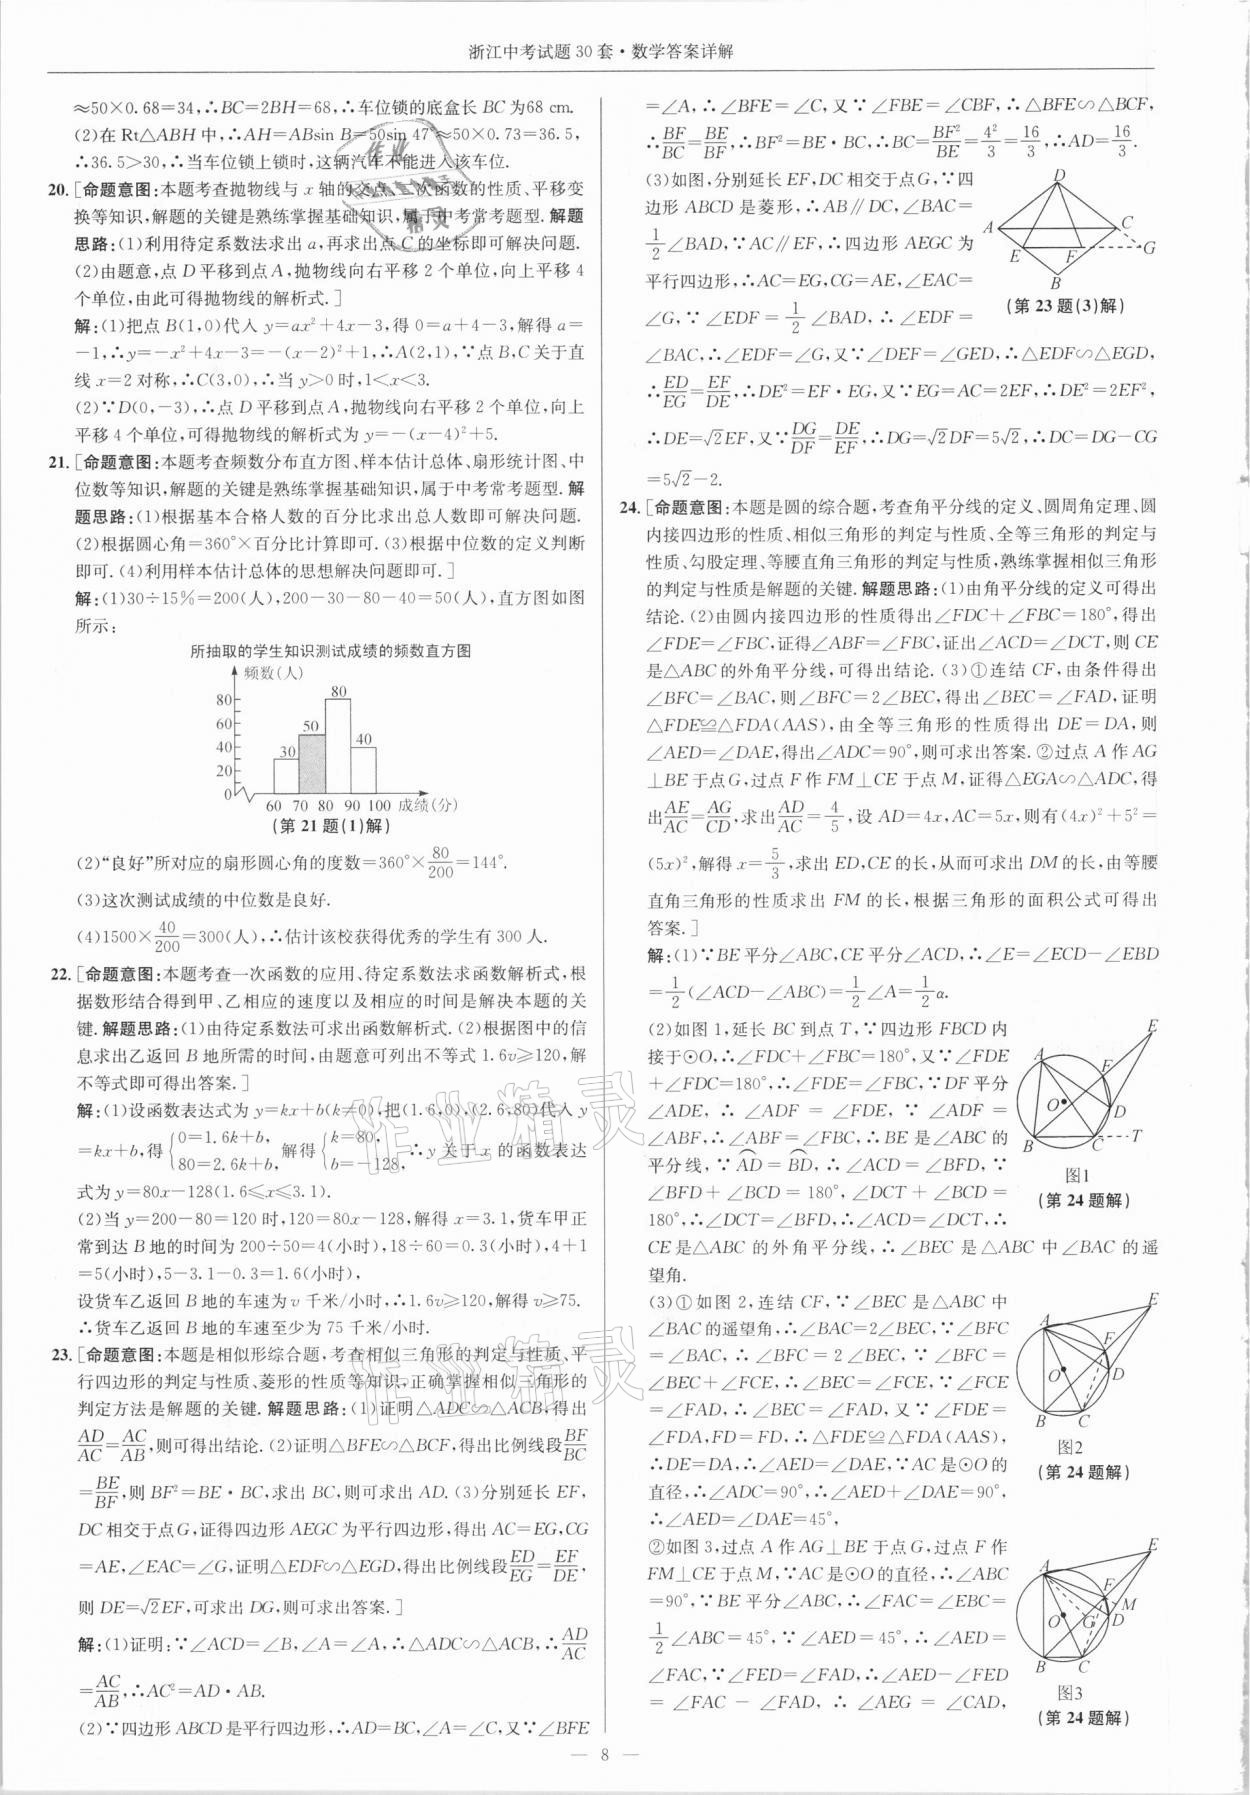 浙江中考试题30套·数学答案详解
≈50×0.68=34,∴BC=2BH=68,∴车位锁的底盒长BC为68 cm.
(2)在Rt△ABH中,∴AH=ABsin B=50sin 47°≈50×0.73=36.5,
∴36.5>30,∴当车位锁上锁时,这辆汽车不能进入该车位.
20.[命题意图:本题考查抛物线与x轴的交点、二次函数的性质、平移变
换等知识,解题的关键是熟练掌握基础知识,属于中考常考题型.解题
思路:(1)利用待定系数法求出a,再求出点C的坐标即可解决问题.
(2)由题意,点D平移到点A,抛物线向右平移2个单位,向上平移4
个单位,由此可得抛物线的解析式.]
解:(1)把点B(1,0)代入y=ax²+4x-3,得0=a+4-3,解得a=
-1,∴y=-x²+4x-3=-(x-2)²+1,∴A(2,1),∵点B,C关于直
线x=2对称,∴C(3,0),∴当y>0时,1<x<3.
(2)∵D(0,-3),∴点D平移到点A,抛物线向右平移2个单位,向上
平移4个单位,可得抛物线的解析式为y=-(x-4)²+5.
21.[命题意图:本题考查频数分布直方图、样本估计总体、扇形统计图、中
位数等知识,解题的关键是熟练掌握基础知识,属于中考常考题型.解
题思路:(1)根据基本合格人数的百分比求出总人数即可解决问题.
(2)根据圆心角=360°×百分比计算即可.(3)根据中位数的定义判断
即可.(4)利用样本估计总体的思想解决问题即可.]
解:(1)30÷15%=200(人),200-30-80-40=50(人),直方图如图
所示:
所抽取的学生知识测试成绩的频数直方图
频数(人)
80
60
40
20
0
30
50
80
40
60 70 80 90 100 成绩(分)
(第21题(1)解)
(2)“良好”所对应的扇形圆心角的度数=360°×80/200=144°.
(3)这次测试成绩的中位数是良好.
(4)1500×40/200=300(人),∴估计该校获得优秀的学生有300人.
22.[命题意图:本题考查一次函数的应用、待定系数法求函数解析式,根
据数形结合得到甲、乙相应的速度以及相应的时间是解决本题的关
键.解题思路:(1)由待定系数法可求出函数解析式.(2)根据图中的信
息求出乙返回B地所需的时间,由题意可列出不等式1.6v≥120,解
不等式即可得出答案.]
解:(1)设函数表达式为y=kx+b(k≠0),把(1.6,0),(2.6,80)代入y
=kx+b,得{0=1.6k+b, 80=2.6k+b, 解得{k=80, b=-128, ∴y关于x的函数表达
式为y=80x-128(1.6≤x≤3.1).
(2)当y=200-80=120时,120=80x-128,解得x=3.1,货车甲正
常到达B地的时间为200÷50=4(小时),18÷60=0.3(小时),4+1
=5(小时),5-3.1-0.3=1.6(小时),
设货车乙返回B地的车速为v千米/小时,∴1.6v≥120,解得v≥75.
∴货车乙返回B地的车速至少为75千米/小时.
23.[命题意图:本题是相似形综合题,考查相似三角形的判定与性质、平
行四边形的判定与性质、菱形的性质等知识,正确掌握相似三角形的
判定方法是解题的关键.解题思路:(1)证明△ADC∽△ACB,得出
AD/AC=AC/AB,则可得出结论.(2)证明△BFE∽△BCF,得出比例线段BF/BC
=BE/BF,则BF²=BE·BC,求出BC,则可求出AD.(3)分别延长EF,
DC相交于点G,证得四边形AEGC为平行四边形,得出AC=EG,CG
=AE,∠EAC=∠G,证明△EDF∽△EGD,得出比例线段ED/EG=EF/DE,
则DE=√2EF,可求出DG,则可求出答案.]
解:(1)证明:∵∠ACD=∠B,∠A=∠A,∴△ADC∽△ACB,∴AD/AC
=AC/AB,∴AC²=AD·AB.
(2)∵四边形ABCD是平行四边形,∴AD=BC,∠A=∠C,又∵∠BFE
=∠A,∴∠BFE=∠C,又∵∠FBE=∠CBF,∴△BFE∽△BCF,
∴BF/BC=BE/BF,∴BF²=BE·BC,∴BC=BF²/BE=4²/3=16/3,∴AD=16/3.
(3)如图,分别延长EF,DC相交于点G,∵四
边形ABCD是菱形,∴AB∥DC,∠BAC=
1/2∠BAD,∵AC∥EF,∴四边形AEGC为
平行四边形,∴AC=EG,CG=AE,∠EAC=
∠G,∵∠EDF=1/2∠BAD,∴∠EDF=
∠BAC,∴∠EDF=∠G,又∵∠DEF=∠GED,∴△EDF∽△EGD,
∴ED/EG=EF/DE,∴DE²=EF·EG,又∵EG=AC=2EF,∴DE²=2EF²,
∴DE=√2EF,又∵DG/DF=DE/EF,∴DG=√2DF=5√2,∴DC=DG-CG
=5√2-2.
D
A
C
E
F
G
B
(第23题(3)解)
24.[命题意图:本题是圆的综合题,考查角平分线的定义、圆周角定理、圆
内接四边形的性质、相似三角形的判定与性质、全等三角形的判定与
性质、勾股定理、等腰直角三角形的判定与性质,熟练掌握相似三角形
的判定与性质是解题的关键.解题思路:(1)由角平分线的定义可得出
结论.(2)由圆内接四边形的性质得出∠FDC+∠FBC=180°,得出
∠FDE=∠FBC,证得∠ABF=∠FBC,证出∠ACD=∠DCT,则CE
是△ABC的外角平分线,可得出结论.(3)①连结CF,由条件得出
∠BFC=∠BAC,则∠BFC=2∠BEC,得出∠BEC=∠FAD,证明
△FDE≌△FDA(AAS),由全等三角形的性质得出DE=DA,则
∠AED=∠DAE,得出∠ADC=90°,则可求出答案.②过点A作AG
⊥BE于点G,过点F作FM⊥CE于点M,证得△EGA∽△ADC,得
出AE/AC=AG/CD,求出AD/AC=4/5,设AD=4x,AC=5x,则有(4x)²+5²=
(5x)²,解得x=5/3,求出ED,CE的长,从而可求出DM的长,由等腰
直角三角形的性质求出FM的长,根据三角形的面积公式可得出
答案.]
解:(1)∵BE平分∠ABC,CE平分∠ACD,∴∠E=∠ECD-∠EBD
=1/2(∠ACD-∠ABC)=1/2∠A=1/2α.
(2)如图1,延长BC到点T,∵四边形FBCD内
接于⊙O,∴∠FDC+∠FBC=180°,又∵∠FDE
+∠FDC=180°,∴∠FDE=∠FBC,∵DF平分
∠ADE,∴∠ADF=∠FDE,∵∠ADF=
∠ABF,∴∠ABF=∠FBC,∴BE是∠ABC的
平分线,∵AD=BD,∴∠ACD=∠BFD,∵
∠BFD+∠BCD=180°,∠DCT+∠BCD=
180°,∴∠DCT=∠BFD,∴∠ACD=∠DCT,∴
CE是△ABC的外角平分线,∴∠BEC是△ABC中∠BAC的遥
望角.
E
A
F
O
D
B
C
T
图1
(第24题解)
(3)①如图2,连结CF,∵∠BEC是△ABC中
∠BAC的遥望角,∴∠BAC=2∠BEC,∵∠BFC
=∠BAC,∴∠BFC=2∠BEC,∵∠BFC=
∠BEC+∠FCE,∴∠BEC=∠FCE,∵∠FCE
=∠FAD,∴∠BEC=∠FAD,又∵∠FDE=
∠FDA,FD=FD,∴△FDE≌△FDA(AAS),
∴DE=DA,∴∠AED=∠DAE,∵AC是⊙O的
直径,∴∠ADC=90°,∴∠AED+∠DAE=90°,
∴∠AED=∠DAE=45°,
E
A
F
O
D
B
C
图2
(第24题解)
②如图3,过点A作AG⊥BE于点G,过点F作
FM⊥CE于点M,∵AC是⊙O的直径,∴∠ABC
=90°,∵BE平分∠ABC,∴∠FAC=∠EBC=
1/2∠ABC=45°,∵∠AED=45°,∴∠AED=
∠FAC,∵∠FED=∠FAD,∴∠AED-∠FED
=∠FAC-∠FAD,∴∠AEG=∠CAD,
E
A
F
M
O
G
D
B
C
图3
(第24题解)
— 8 —
作业精灵
作业精灵